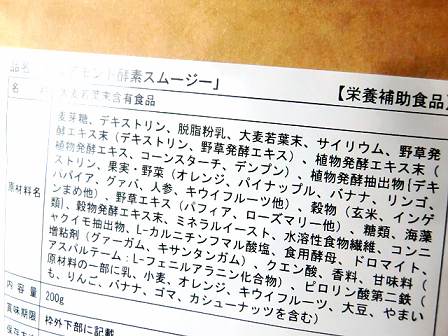 品名 「アーモンド酵素スムージー」 【栄養補助食品】
名 称 大麦若葉末含有食品
原材料名
麦芽糖、デキストリン、脱脂粉乳、大麦若葉末、サイリウム、野草発
酵エキス末（デキストリン、野草発酵エキス）、植物発酵エキス末（
植物発酵エキス、コーンスターチ、デンプン）、植物発酵抽出物[デキ
ストリン、果実・野菜（オレンジ、パイナップル、バナナ、リンゴ、
パパイア、グァバ、人参、キウイフルーツ他）、穀物（玄米、インゲ
ンまめ他）、野草エキス（パフィア、ローズマリー他）、糖類、海藻
類]、穀物発酵エキス末、ミネラルイースト、水溶性食物繊維、コンニ
ャクイモ抽出物、L-カルニチンフマル酸塩、食用酵母、ドロマイト、
増粘剤（グァーガム、キサンタンガム）、クエン酸、香料、甘味料（
アスパルテーム：L-フェニルアラニン化合物）、ピロリン酸第二鉄（
原材料の一部に乳、小麦、オレンジ、キウイフルーツ、大豆、やまい
も、りんご、バナナ、ゴマ、カシューナッツを含む）
内容量 200g
賞味期限 枠外下部に記載
保存方法